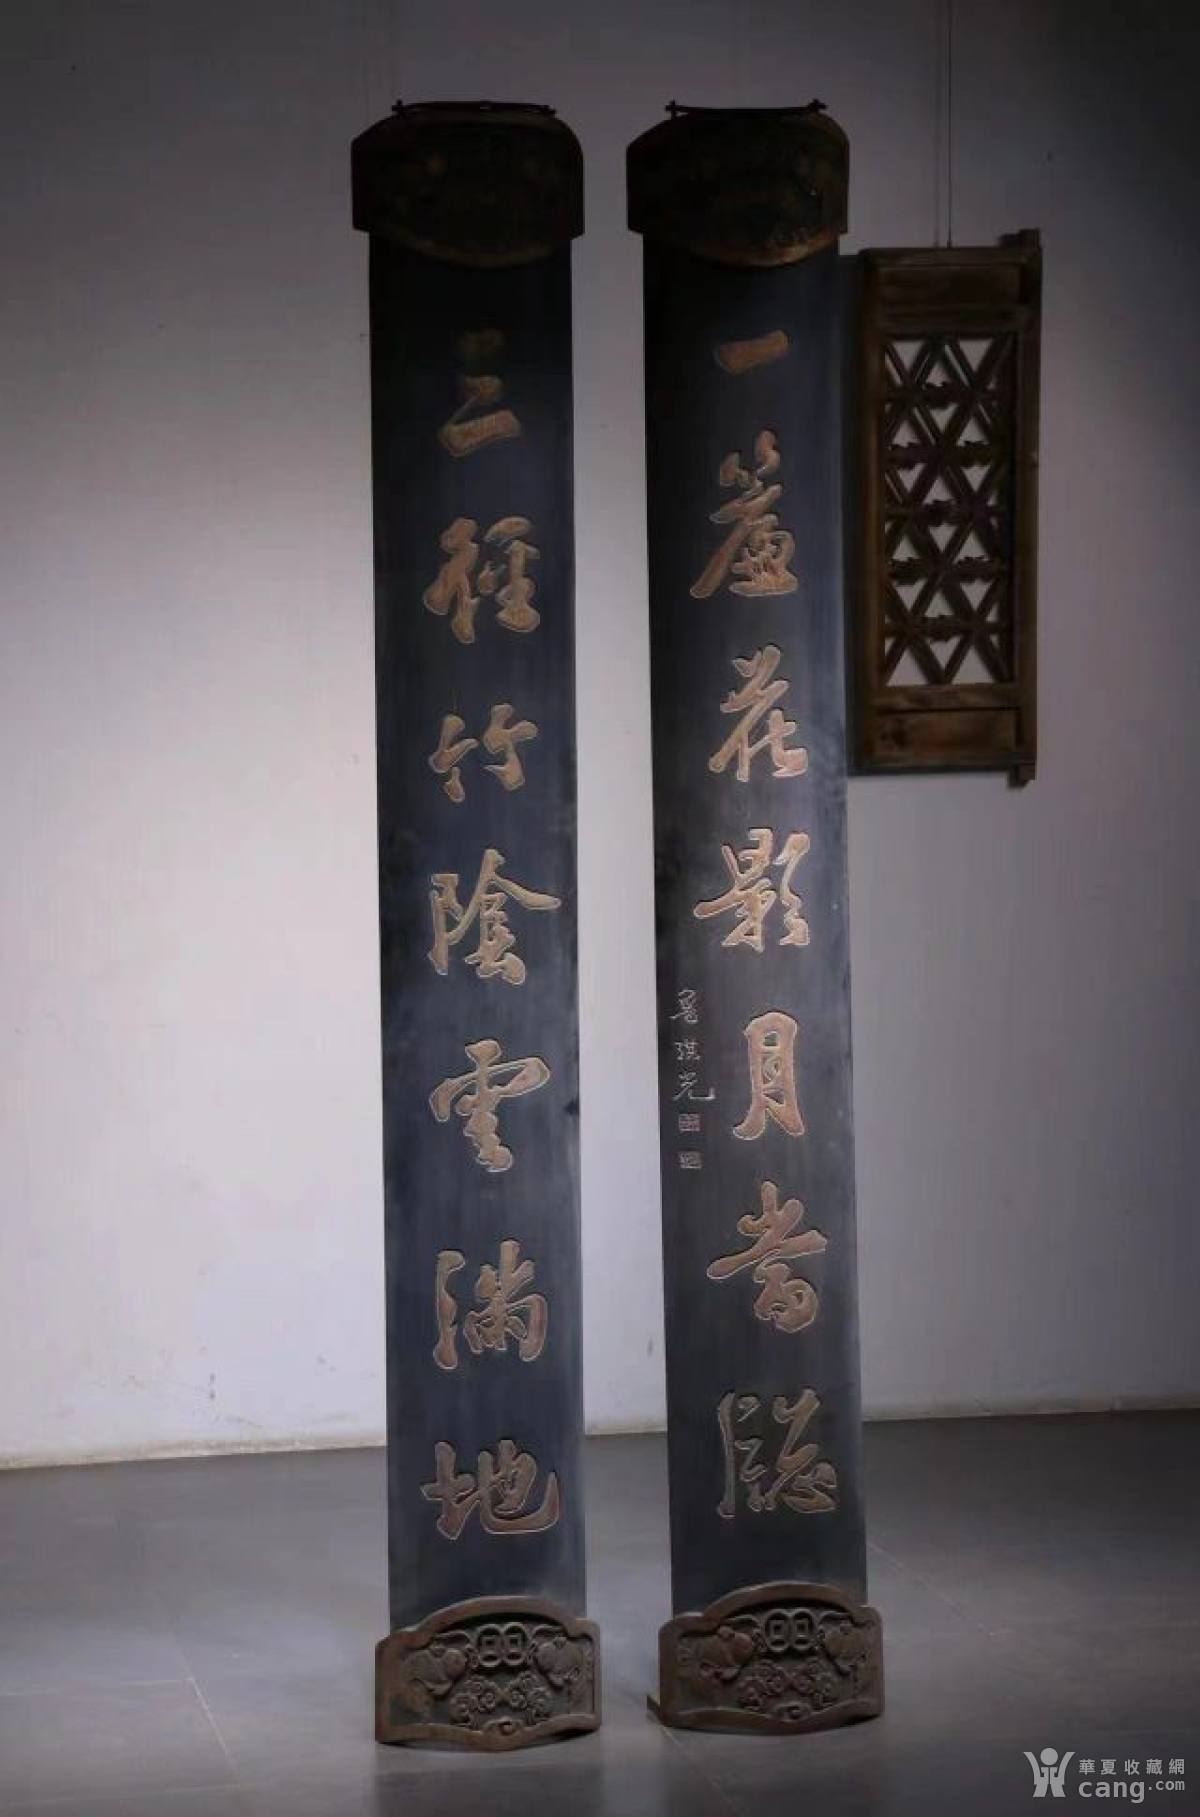 三徑竹陰雲滿地
一簾花影月當牕
魯琪光
華夏收藏網
cang.com